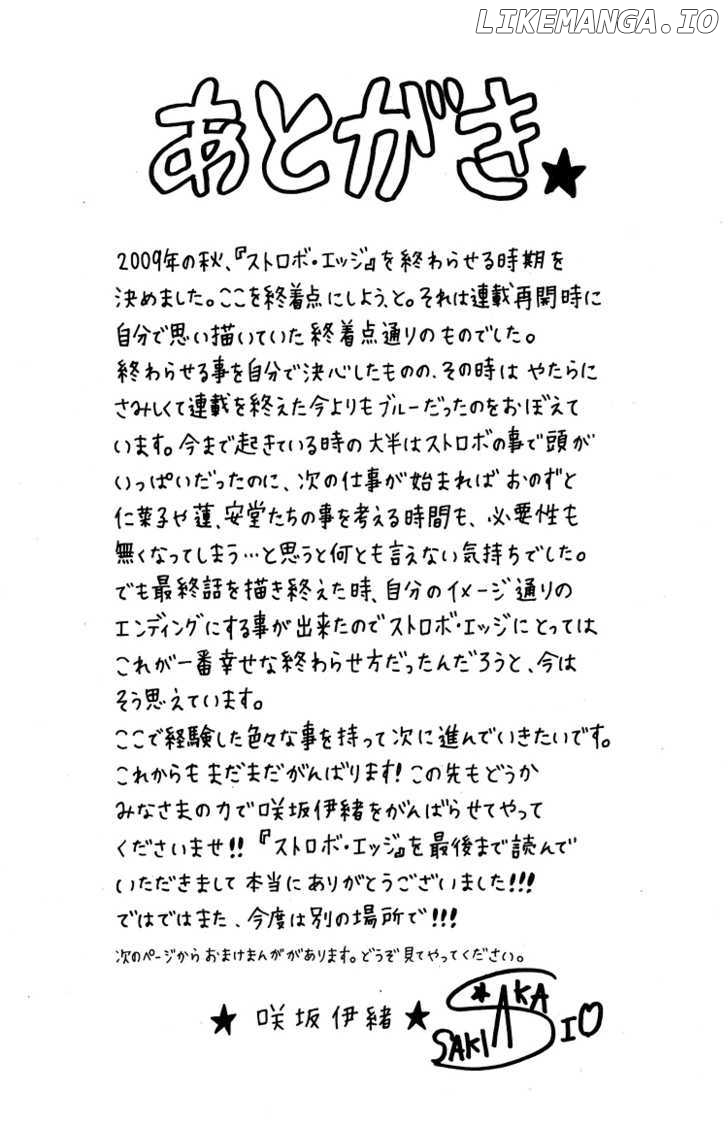 LIKEMANGA.IO
あとがき★
2009年の秋、『ストロボ・エッジ』を終わらせる時期を
決めました。ここを終着点にしよう、と。それは連載再開時に
自分で思い描いていた終着点通りのものでした。
終わらせる事を自分で決心したものの、その時は やたらに
さみしくて連載を終えた今よりもブルーだったのをおぼえて
います。今まで起きている時の大半はストロボの事で頭が
いっぱいだったのに、次の仕事が始まれば おのずと
仁菜子や蓮、安堂たちの事を考える時間も、必要性も
無くなってしまう…と思うと何とも言えない気持ちでした。
でも最終話を描き終えた時、自分のイメージ通りの
エンディングにする事が出来たのでストロボ・エッジにとっては
これが一番幸せな終わらせ方だったんだろうと、今は
そう思えています。
ここで経験した色々な事を持って次に進んでいきたいです。
これからもまだまだがんばります!この先もどうか
みなさまの力で咲坂伊緒をがんばらせてやって
くださいませ!!『ストロボ・エッジ』を最後まで読んで
いただきまして本当にありがとうございました!!!
ではではまた、今度は別の場所で!!!
次のページからおまけまんががあります。どうぞ見てやってください。
★ 咲坂伊緒 ★ SAKISAKA IO